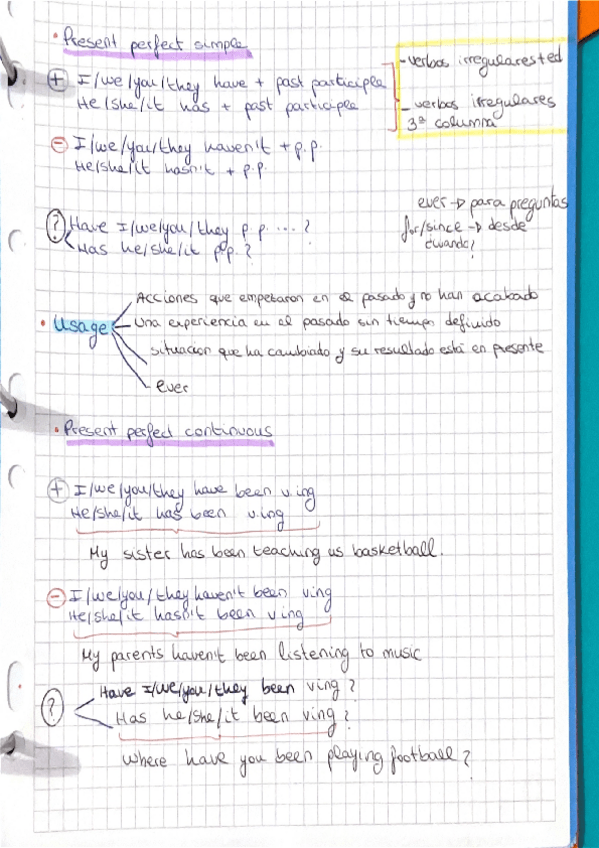 Present perfect simple
+ I/we/you/they have + past participle
He/she/it has + past participle
-verbos irregulares + ed
- verbos irregulares
3ª columna
- I/we/you/they haven't + p.p.
He/she/it hasn't + p.p.
ever → para preguntas
for/since → desde
cuando?
? Have I/we/you/they p.p. ....?
Has he/she/it p.p.?
Usage
Acciones que empezaron en el pasado y no han acabado
Una experiencia en el pasado sin tiempo definido
situación que ha cambiado y su resultado está en presente
ever
Present perfect continuous
+ I/we/you/they have been ving
He/she/it has been ving
My sister has been teaching us basketball.
- I/we/you/they haven't been ving
He/she/it hasn't been ving
My parents haven't been listening to music
? Have I/we/you/they been ving?
Has he/she/it been ving?
Where have you been playing football?